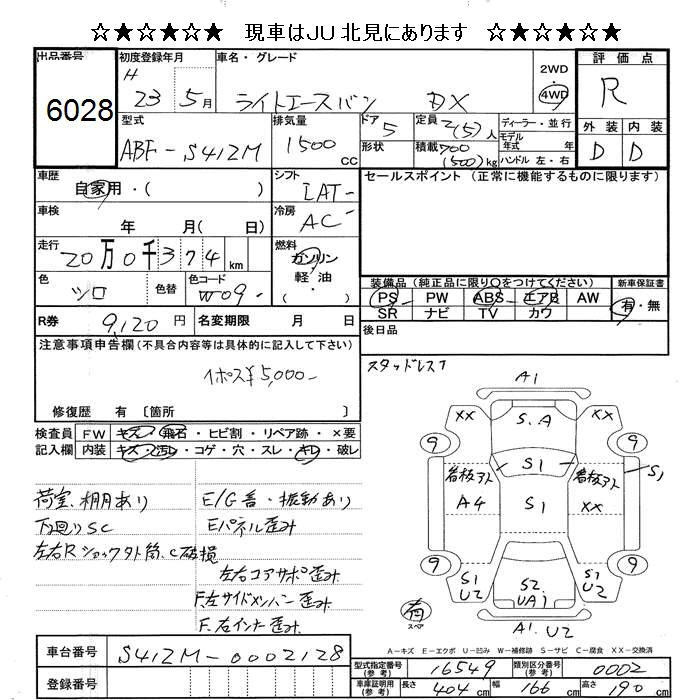 ☆★☆★☆★ 現車はJU北見にあります ☆★☆★☆★
出品番号 初度登録年月 車名・グレード 2WD 評価点
6028 H 23 5月 ライトエースバン DX 4WD R
型式 排気量 ドア 定員 ディーラー・並行 外装 内装
ABF-S412M 1500 CC 5 2(5)人 モデル年式 年 D D
形状 積載 700 (500)kg ハンドル 左・右
車歴 シフト セールスポイント (正常に機能するものに限ります)
自家用・( ) IAT-
車検 冷房
年 月( 日) AC
走行 燃料
20万0千374 km ガソリン・軽油・( )
色 色替 色コード
ツロ W09- 装備品(純正品に限り○をつけてください) 新車保証書
PS PW ABS エアB AW 有・無
SR ナビ TV カワ
R券 9,120円 名変期限 月 日 後日品
注意事項申告欄(不具合内容等は具体的に記入して下さい) スタッドレス7
1ポス¥5,000-
修復歴 有 〔箇所 〕
検査員 FW キズ・飛石・ヒビ割・リペア跡・×要
記入欄 内装 キズ・汚レ・コゲ・穴・スレ・キレ・破レ
荷室、棚用あり E/G音・振動あり
下廻りSC Eパネル歪み
左右Rショック外筒、C破損
左右コアサポ歪み
F.左サイドメンバー歪み
F.左インナー歪み
A1
XX S.A XX
9 9
S1
看板アト 看板アト S1
A4 S1 XX
9 9
S1 U2 S2 UA1 S1 U2
有 スペア
A1. U2
A-キズ E-エクボ U-凹み W-補修跡 S-サビ C-腐食 XX-交換済
車台番号 S412M-0002128
登録番号
型式指定番号(参考) 16549 類別区分番号(参考) 0002
車庫証明用(参考) 長さ 404cm 幅 166cm 高さ 190cm